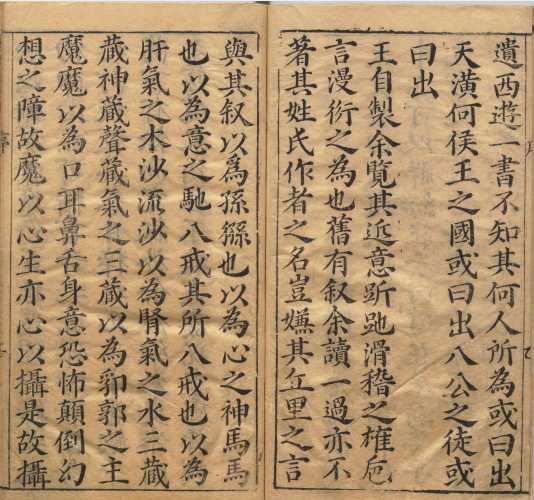 遺西遊一書不知其何人所為或曰出
天潢何侯王之國或曰出八公之徒或
曰出
王自製余覽其近意跅跎滑稽之雄卮
言漫衍之為也舊有叙余讀一過亦不
著其姓氏作者之名豈嫌其丘里之言
與其叙以爲孫猻也以為心之神馬馬
也以為意之馳八戒其所八戒也以為
肝氣之木沙流沙以為腎氣之水三藏
藏神藏聲藏氣之三藏以為郛郭之主
魔魔以為口耳鼻舌身意恐怖顛倒幻
想之障故魔以心生亦心以攝是故攝